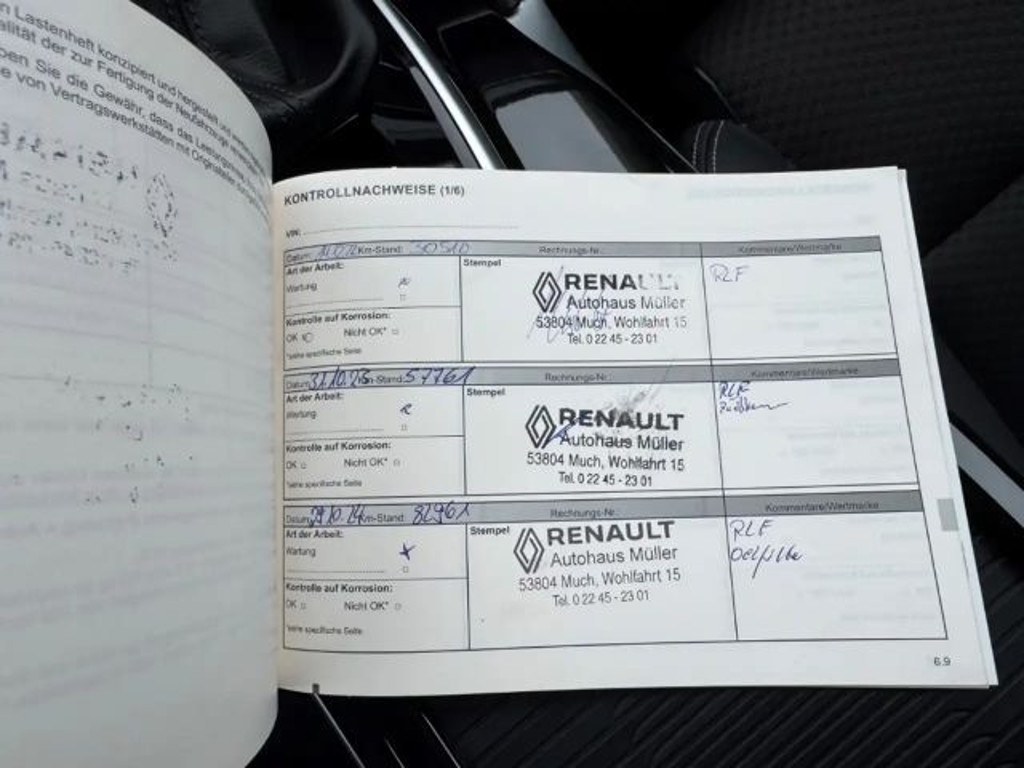 n Lastenheft konzipiert und hergestellt und
alität der zur Fertigung der Neufahrzeuge
ben Sie die Gewähr, dass das
e von Vertragswerkstätten mit
KONTROLLNACHWEISE (1/6)
VIN:
Datum: Km-Stand: 30510 Rechnungs-Nr.: Kommentare/Wertmarke
Art der Arbeit: Stempel RLF
Wartung
RENAULT
Autohaus Müller
53804 Much, Wohlfahrt 15
Tel. 0 22 45 - 23 01
Kontrolle auf Korrosion:
OK Nicht OK*
*siehe spezifische Seite
Datum: 31.10.23 Km-Stand: 57761 Rechnungs-Nr.: Kommentare/Wertmarke
Art der Arbeit: Stempel RLF
Wartung
RENAULT
Autohaus Müller
53804 Much, Wohlfahrt 15
Tel. 0 22 45 - 23 01
Kontrolle auf Korrosion:
OK Nicht OK*
*siehe spezifische Seite
Datum: 29.10.24 Km-Stand: 82961 Rechnungs-Nr.: Kommentare/Wertmarke
Art der Arbeit: Stempel RLF
Wartung
RENAULT
Autohaus Müller
53804 Much, Wohlfahrt 15
Tel. 0 22 45 - 23 01
Kontrolle auf Korrosion:
OK Nicht OK*
*siehe spezifische Seite
6.9